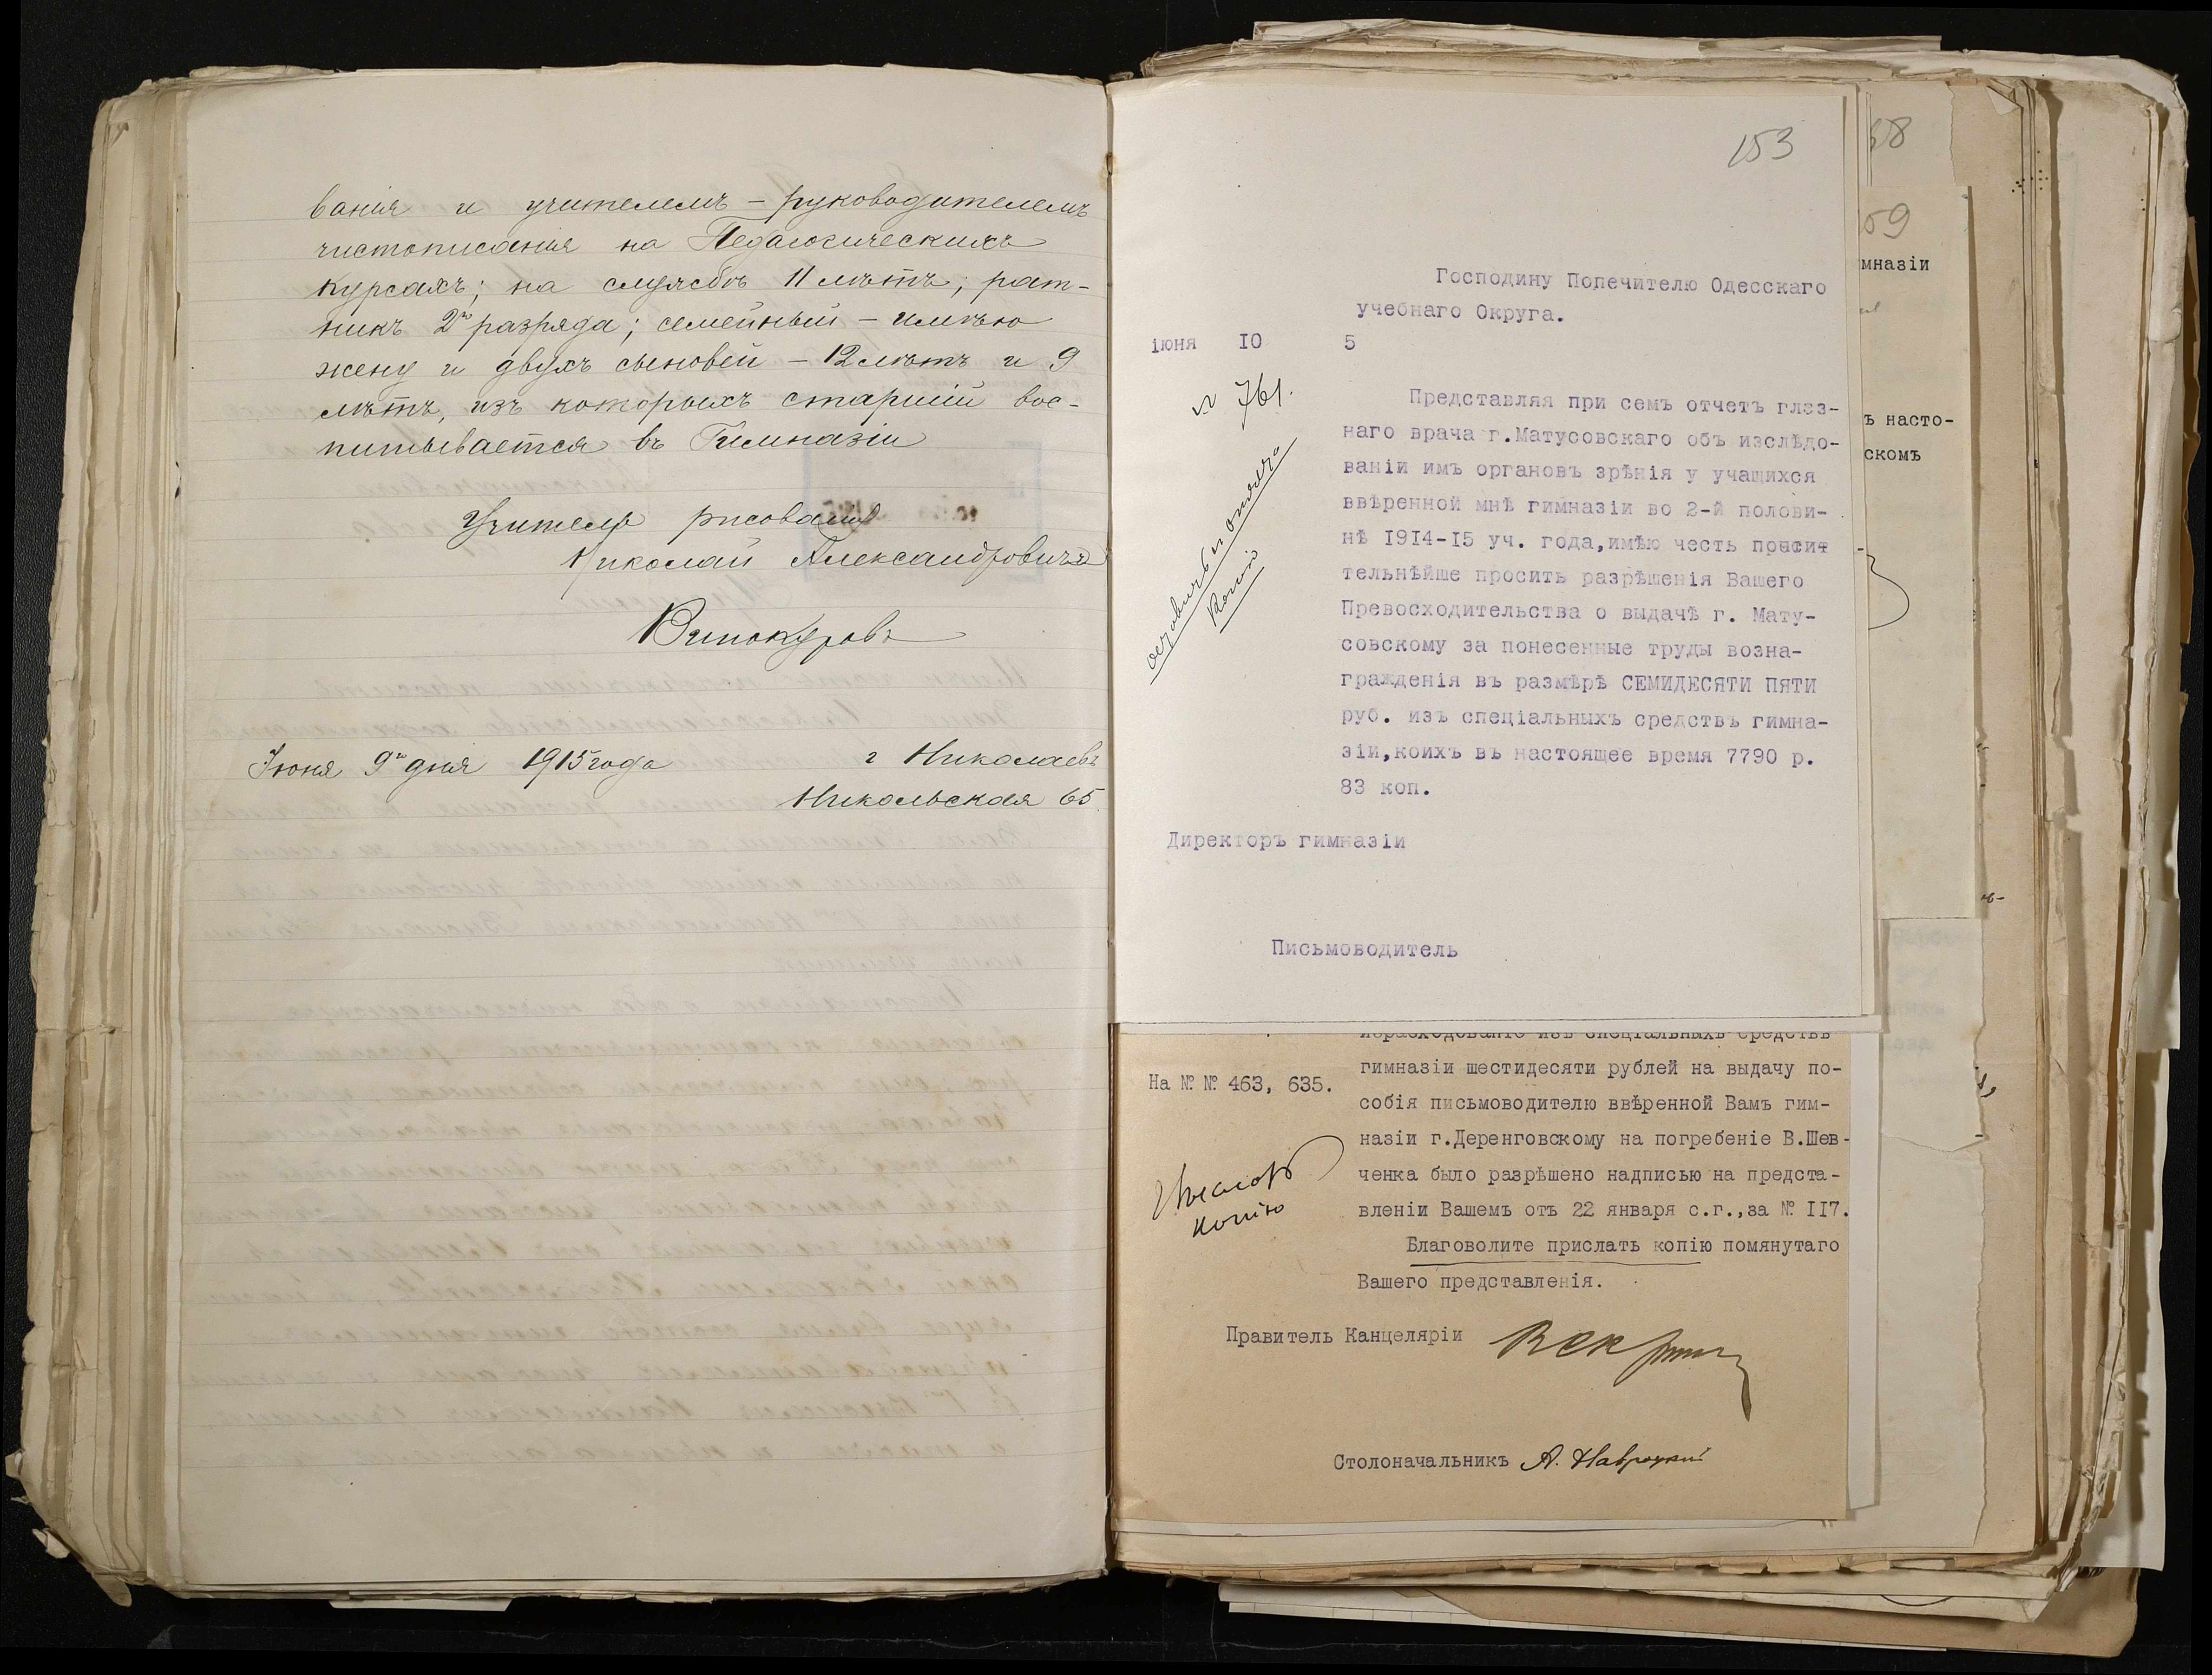 ванія и учителемъ – руководителемъ
чистописанія на Педагогическихъ
Курсахъ; на службѣ 11 лѣтъ; рат-
никъ 2го разряда; семейный – имѣю
жену и двухъ сыновей – 12 лѣтъ и 9
лѣтъ, изъ которыхъ старшій вос-
питывается въ Гимназіи
Учитель рисованія
Николай Александровичъ
Винокуровъ
Іюня 9го дня 1915 года г Николаевъ
Никольская 65.
153
Господину Попечителю Одесскаго
учебнаго Округа.
іюня IO 5
№ 761.
Представляя при семъ отчетъ глаз-
наго врача г.Матусовскаго объ изслѣдо-
ваніи имъ органовъ зрѣнія у учащихся
ввѣренной мнѣ гимназіи во 2-й полови-
нѣ I9I4-I5 уч. года,имѣю честь
тельнѣйше просить разрѣшенія Вашего
Превосходительства о выдачѣ г. Мату-
совскому за понесенные труды возна-
гражденія въ размѣрѣ СЕМИДЕСЯТИ ПЯТИ
руб. изъ спеціальныхъ средствъ гимна-
зіи,коихъ въ настоящее время 7790 р.
83 коп.
Директоръ гимназіи
Письмоводитель
израсходованіе изъ спеціальныхъ средствъ
На № № 463, 635.
гимназіи шестидесяти рублей на выдачу по-
собія письмоводителю ввѣренной Вамъ гим-
назіи г.Деренговскому на погребеніе В.Шев-
ченка было разрѣшено надписью на предста-
вленіи Вашемъ отъ 22 января с.г.,за № II7.
Благоволите прислать копію помянутаго
Вашего представленія.
копію
Правитель Канцеляріи
Столоначальникъ А. Навроцкій
58
59
мназіи
ъ насто-
скомъ